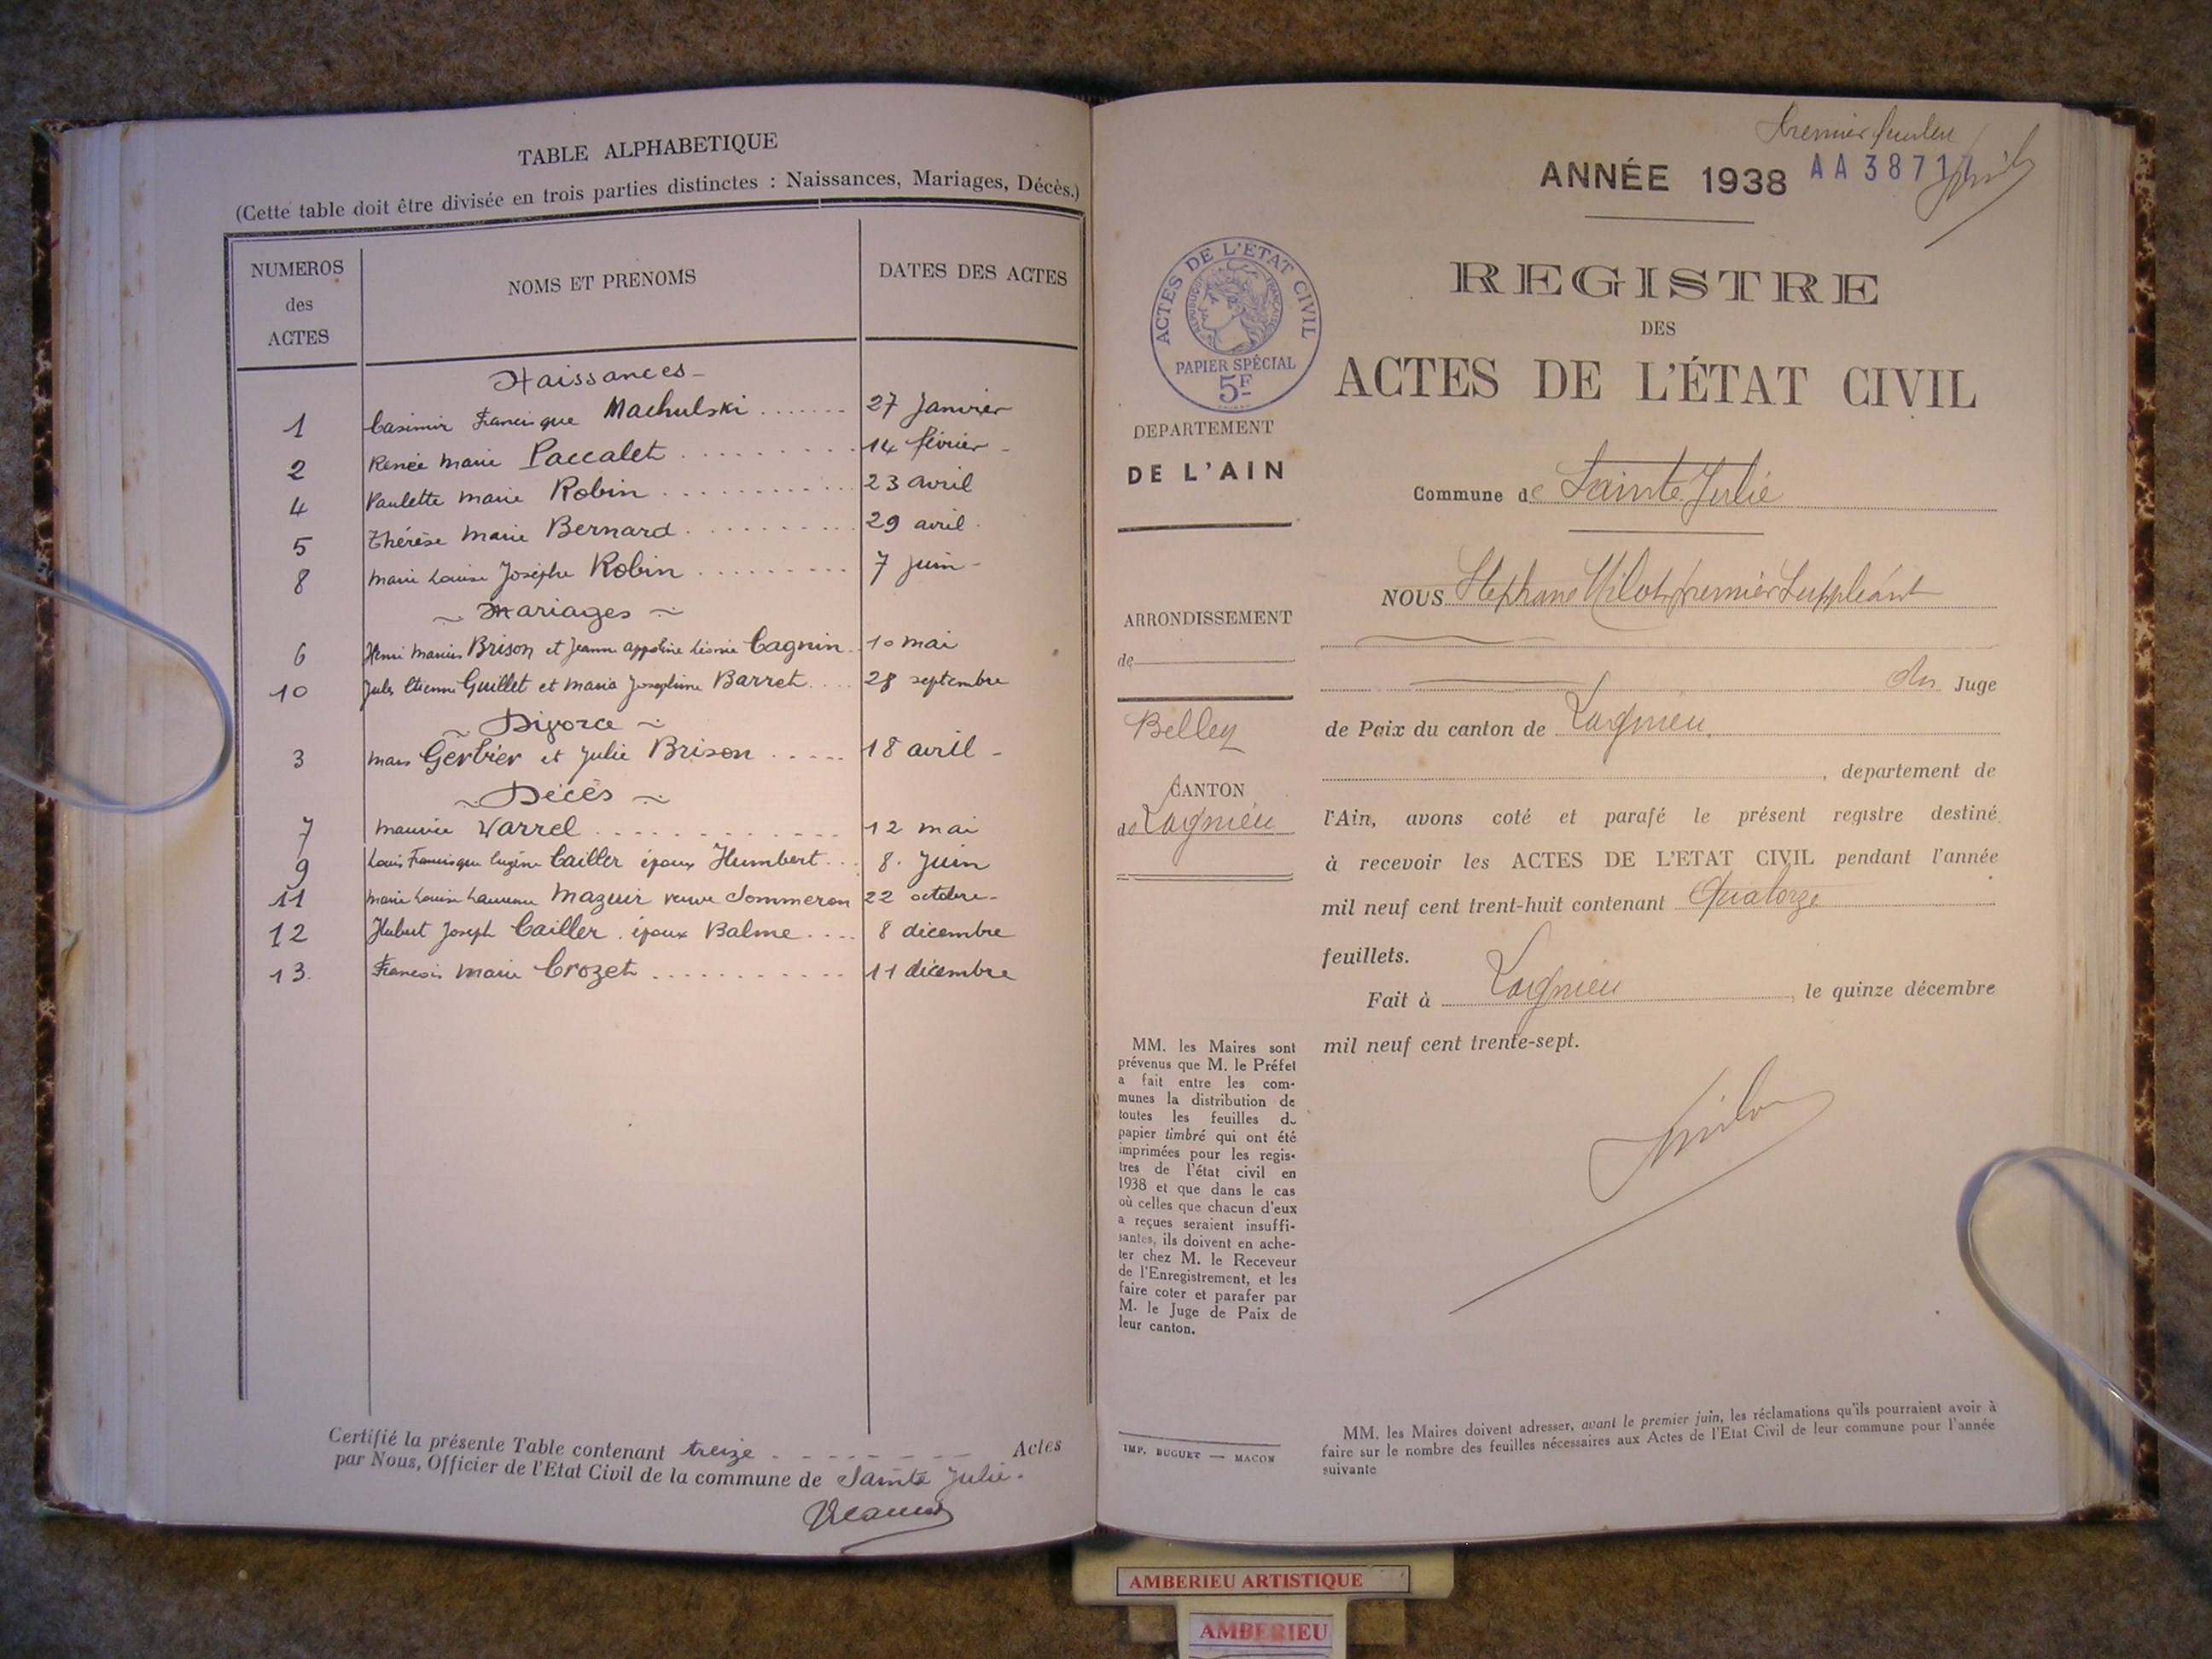 TABLE ALPHABETIQUE
(Cette table doit être divisée en trois parties distinctes : Naissances, Mariages, Décès.)
NUMEROS des ACTES
NOMS ET PRENOMS
DATES DES ACTES
Naissances
1 Casimir Francisque Machulski 27 Janvier
2 Renée Marie Paccalet 14 février
4 Paulette Marie Robin 23 avril
5 Thérèse Marie Bernard 29 avril
8 Marie Louise Josèphe Robin 7 juin
Mariages
6 Henri Marius Brison et Jeanne Appoline Léonie Cagnin 10 mai
10 Jules Etienne Guillet et Maria Joséphine Barret 28 septembre
Divorce
3 Gerbier et Julie Brison 18 avril
Décès
7 Maurice Varrel 12 mai
9 Louis Francisque Eugène Cailler époux Humbert 8 Juin
11 Marie Louise Mazuir veuve Sommeron 22 octobre
12 Hubert Joseph Cailler époux Balme 8 décembre
13 François Marie Crozet 11 décembre
Certifié la présente Table contenant treize Actes
par Nous, Officier de l'Etat Civil de la commune de Sainte Julie.
Premier
ANNÉE 1938 AA 3871
REGISTRE
DES
ACTES DE L'ÉTAT CIVIL
ACTES DE L'ÉTAT CIVIL
RÉPUBLIQUE FRANÇAISE
PAPIER SPÉCIAL
5F
DEPARTEMENT
DE L'AIN
Commune de Sainte Julie
NOUS Stéphane Milot premier Suppléant
ARRONDISSEMENT
de
du Juge
Belley
de Paix du canton de Lagnieu.
, département de
CANTON
de Lagnieu
l'Ain, avons coté et parafé le présent registre destiné
à recevoir les ACTES DE L'ETAT CIVIL pendant l'année
mil neuf cent trent-huit contenant Quatorze
feuillets.
Fait à Lagnieu, le quinze décembre
mil neuf cent trente-sept.
MM. les Maires sont
prévenus que M. le Préfet
a fait entre les com-
munes la distribution de
toutes les feuilles du
papier timbré qui ont été
imprimées pour les regis-
tres de l'état civil en
1938 et que dans le cas
où celles que chacun d'eux
a reçues seraient insuffi-
santes, ils doivent en ache-
ter chez M. le Receveur
de l'Enregistrement, et les
faire coter et parafer par
M. le Juge de Paix de
leur canton.
IMP. BUGUET — MACON
MM. les Maires doivent adresser, avant le premier juin, les réclamations qu'ils pourraient avoir à
faire sur le nombre des feuilles nécessaires aux Actes de l'Etat Civil de leur commune pour l'année
suivante
AMBERIEU ARTISTIQUE
AMBERIEU